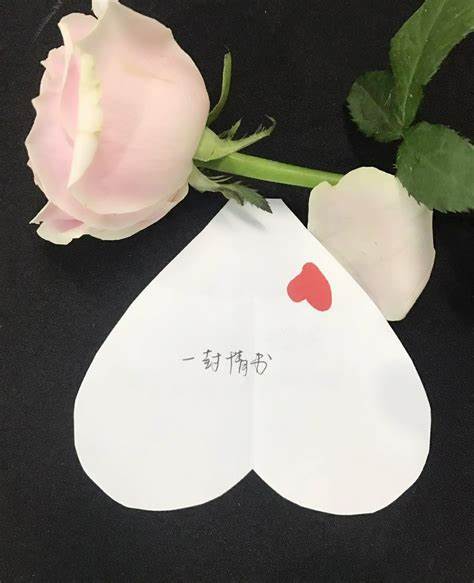 一封情书